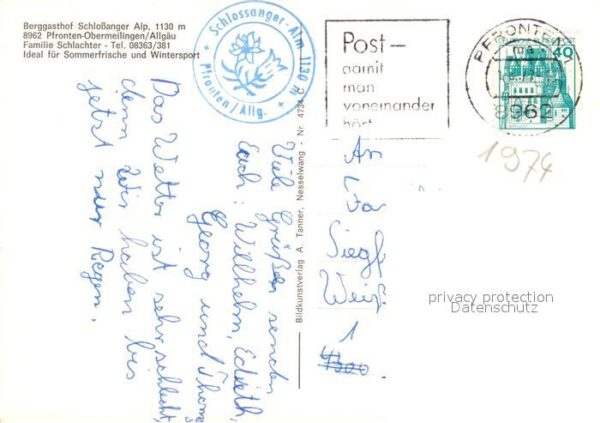 Berggasthof Schloßanger Alp, 1130 m
8962 Pfronten-Obermeilingen/Allgäu
Familie Schlachter - Tel. 08363/381
Ideal für Sommerfrische und Wintersport
Schlossanger-Alm 1130 m
Pfronten/Allg.
Post-
damit
man
voneinander
hört
PFRONTEN 1
8962
40
1974
Viele Grüße senden
Euch: Wilhelm, Edith,
Georg und Thomas
Das Wetter ist sehr schlecht,
denn wir haben bis
jetzt nur Regen.
Bildkunstverlag A. Tanner, Nesselwang - Nr 4734 C
An
Siegf
1
privacy protection
Datenschutz